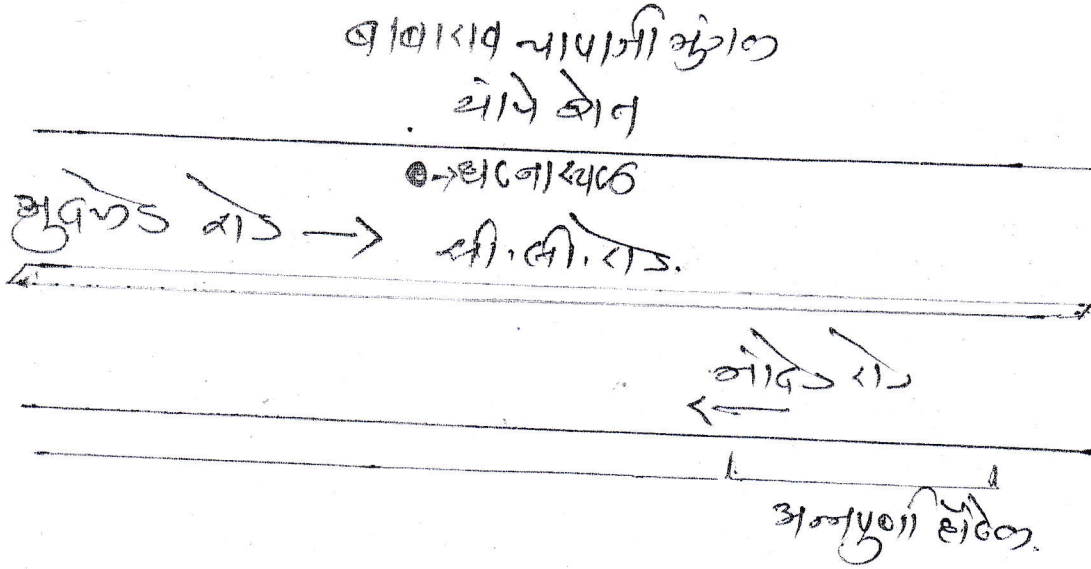 बाबाराव चापाजी मुंगल
यांचे शेत
घटनास्थळ
मुदखेड रोड
सी.सी. रोड.
नांदेड रोड
अन्नपुर्णा हॉटेल.